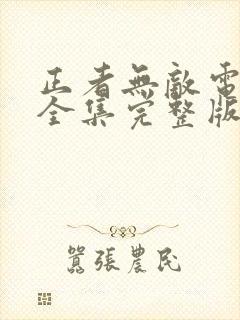 正者無敵電
全集完整版
囂張農民